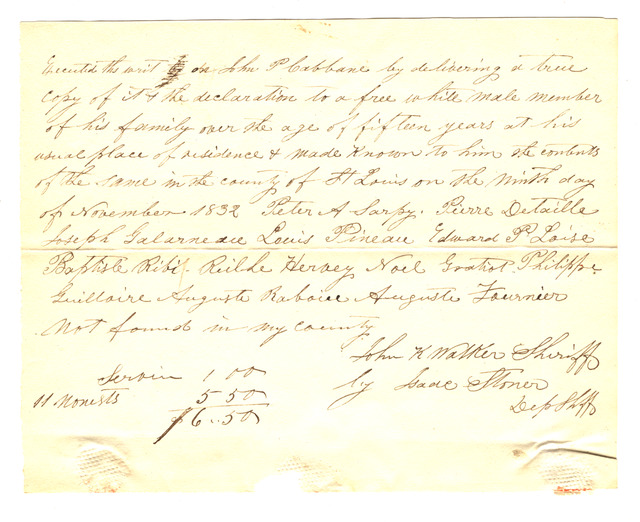 Executed this writ on John P Cabbane by delivering a true
copy of it & the declaration to a free white male member
of his family over the age of fifteen years at his
usual place of residence & made known to him the contents
of the same in the county of St Louis on the Ninth day
of November 1832 Peter A Sarpy. Pierre Detaille
Joseph Galarneau Louis Pineau Edward P Loise
Baptiste Hervey Noel Gratiot Philippe
Guillaire Auguste Auguste Fournier
Not found in my county
John K Walker Sheriff
by Isaac Stoner
Dep Shff
Servin 1 00
11 Nonests 5 50
$6..50